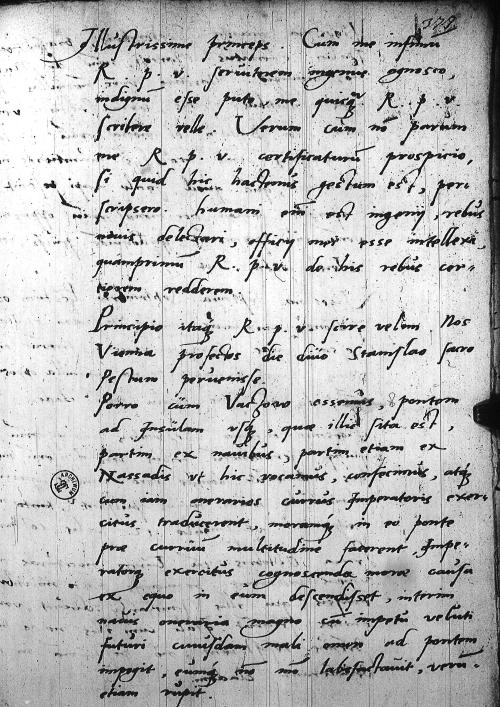 379
Illustrissime princeps. Cum me infimū
R. p. v. servitorem ingenue agnosco,
indignū esse puto me quicq̄ R. p. v.
scribere velle. Verum cum nō parum
me R. p. v. certificaturū prospicio,
si quid hic hactenus gestum est, per
scripsero. humani em̄ est ingenij, rebus
novis delectari, officij mei esse intellexi,
quamprimū R. p. v. de his rebus cer-
tiorem redderem.
Principio itaq̄ R. p. v. scire velim Nos
Vienna profectos die divo Stanislao sacro
Pestum pervenisse.
Porro cum Vaczovo essemus, pontem
ad Insulam usq̄, quae illic sita est,
partim ex navibus, partim etiam ex
Nassadis ut hic vocamus, confecimus, atq̄
cum iam onerarios currus Imperatoris exer-
citus traducerent, moramq̄ in eo ponte
prae curruū multitudine facerent. Impe-
ratorq̄ exercitus cognoscendae morae causa
ex equo in eum descendisset, interim
navis oneraria magno cū impetu veluti
futuri cuiusdam mali omen ad pontem
impegit, eumq̄ nō labefactavit, verū-
etiam rupit.